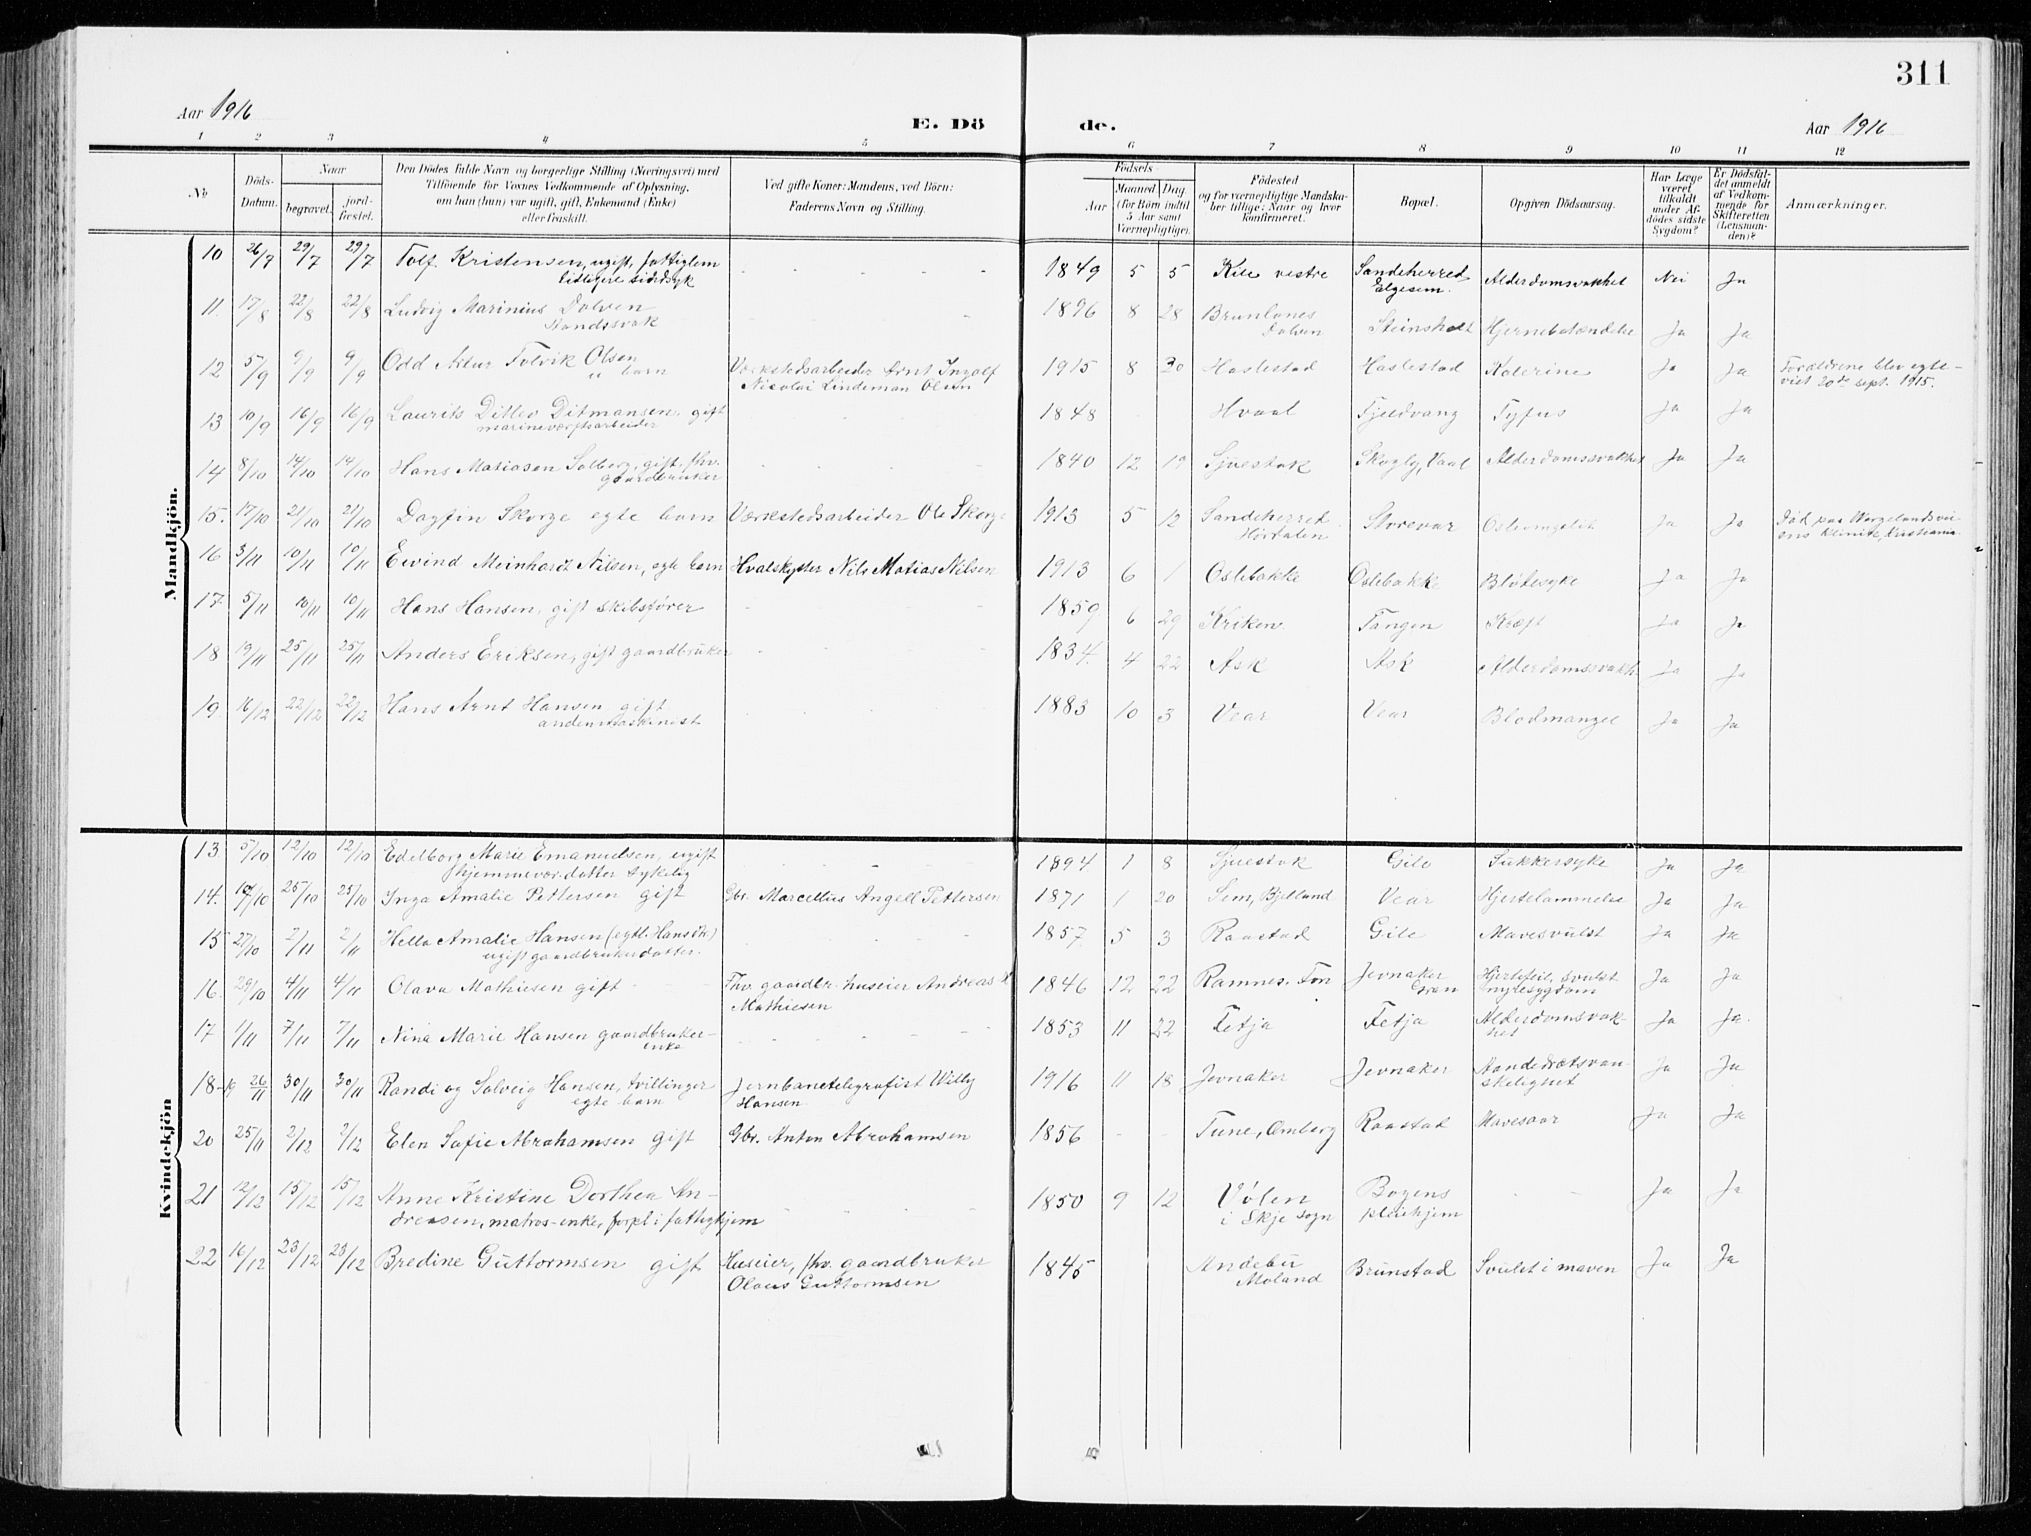 311
Aar 1916
E. Döde.
Aar 1916
1 2 3 4 5 6 7 8 9 10 11 12
No
Döds-Datum.
Naar
begravet.
jordfæstet.
Den Dödes fulde Navn og borgerlige Stilling (Næringsvei) med
Tilföiende for Voxnes Vedkommende af Oplysning,
om han (hun) var ugift, gift, Enkemand (Enke)
eller fraskilt.
Ved gifte Koner: Mandens, ved Börn:
Faderens Navn og Stilling.
Födsels
Aar
Maaned. Dag.
(for Börn indtil
5 Aar samt
Værnepligtige).
Födested
og for værnepligtige Mandska-
ber tillige: Naar og hvor
konfirmeret.
Bopæl.
Opgiven Dödsaarsag.
Har Læge
været
tilkaldt
under Af-
dödes sidste
Sygdom?
Er Dödsfal-
det anmeldt
af Vedkom-
mende for
Skifteretten
(Lensman-
den)?
Anmærkninger.
Mandkjön.
10 26/7 29/7 29/7 Tolf Kristensen, ugift, fattiglem 1849 5 5 vestre Sandeherred Alderdomsvakhet Nei Ja
tidligere sindssyk Elgesem.
11. 17/8 22/8 22/8 Ludvig Marinius Dalven 1896 8 28 Brunlanes Steinsholt Hjernebetændelse Ja Ja
Aandssvak Dalven
12 5/9 9/9 9/9 Odd Artur Tolvik Olsen Værkstedsarbeider Arnt Ingolf 1915 8 30 Haslestad Haslestad Kolerine Ja Ja Forældrene blev egte-
u barn Nicolai Lindeman Olsen viet 20de sept. 1915.
13 10/9 16/9 16/9 Laurits Ditlev Ditmansen, gift 1848 Hvaal Fjeldvang Tyfus Ja Ja
marineværftsarbeider
14 8/10 14/10 14/10 Hans Matiasen Solberg, gift, fhv. 1840 12 19 Sjuestok Skogly, Vaal Alderdomssvakhet Ja Ja
gaardbruker
15. 17/10 21/10 21/10 Dagfin Skorge egte barn Værkstedsarbeider Ole Skorge 1913 5 12 Sandeherred Storevar Ja Ja Död paa Wergelandsvei-
Hörtalen ens klinik, Kristiania
16 3/11 10/11 10/11 Eivind Meinhard Nilsen, egte barn Hvalskytter Nils Matias Nilsen 1913 6 1 Oslebakke Oslebakke Blötesyke Ja Ja
17 5/11 10/11 10/11 Hans Hansen, gift skibsförer 1859 6 29 Kriken Tangen Kræft Ja Ja
18 19/11 25/11 25/11 Anders Eriksen, gift gaardbruker 1834. 4 22 Ask Ask Alderdomssvakh Ja Ja
19 16/12 22/12 22/12 Hans Arnt Hansen gift 1883 10 3 Vear Vear Blodmangel Ja Ja
andenmaskinist
Kvindekjön
13 5/10 12/10 12/10 Edelborg Marie Emanuelsen, ugift 1894 1 8 Sjuestok Gile Sukkersyke Ja Ja
hjemmevær. datter sykelig
14. 19/10 25/10 25/10 Inga Amalie Pettersen gift Gbr. Marcellus Angell Pettersen 1871 1 20 Sem, Bjelland Vear Hjertelammelse Ja Ja
15 27/10 2/11 2/11 Hella Amalie Hansen 1857. 5 3 Raastad Gile Mavesvulst Ja Ja
ugift gaardbrukerdatter.
16. 29/10 4/11 4/11 Olava Mathiesen gift Fhv. gaardbr. huseier Andreas 1846 12 22 Ramnes. Fon Jevnaker Hjertefeil, svulst Ja Ja
Mathiesen Gran nyresygdom
17 1/11 7/11 7/11 Nina Marie Hansen gaardbruker- 1853 11 22 Fetja Fetja Alderdomsvak- Ja Ja.
enke het
18-19 26/11 30/11 30/11 Randi og Solveig Hansen, tvillinger Jernbanetelegrafist Willy 1916 11 18 Jevnaker Jevnaker Aandedrætsvan- Ja Ja
egte barn Hansen skelighet
20 25/11 2/12 2/12 Elen Sofie Abrahamsen gift Gbr. Anton Abrahamsen 1856 - - Tune, Omberg Raastad Mavesaar Ja Ja
21 12/12 15/12 15/12 Anne Kristine Dorthea An- 1850 9 12 Vølen Bogens - - Ja Ja
dreasen, matros-enke, forpl. i fattighjem i Skje sogn pleiehjem
22 16/12 23/12 23/12 Bredine Guttormsen gift Huseier, fhv. gaardbruker 1845 Andebu Brunstad Svulst i maven Ja Ja
Olaus Guttormsen Moland